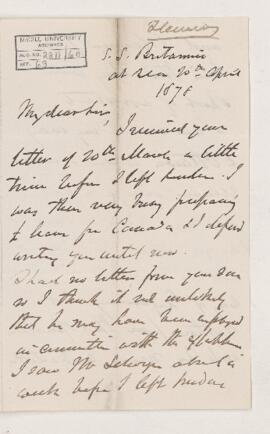 McGILL UNIVERSITY
ARCHIVES
ACC. NO.
REF.
S. S. Britannic
at sea 20th April
1878
My dear Sir,
I received your
letter of 20th March a little
time before I left London. I
was then very busy preparing
to leave for Canada & I defered
writing you until now.
I had no letter from your Son
so I think it not unlikely
that he may have been employed
in connection with the
I saw Mr Selwyn about a
week before I left London